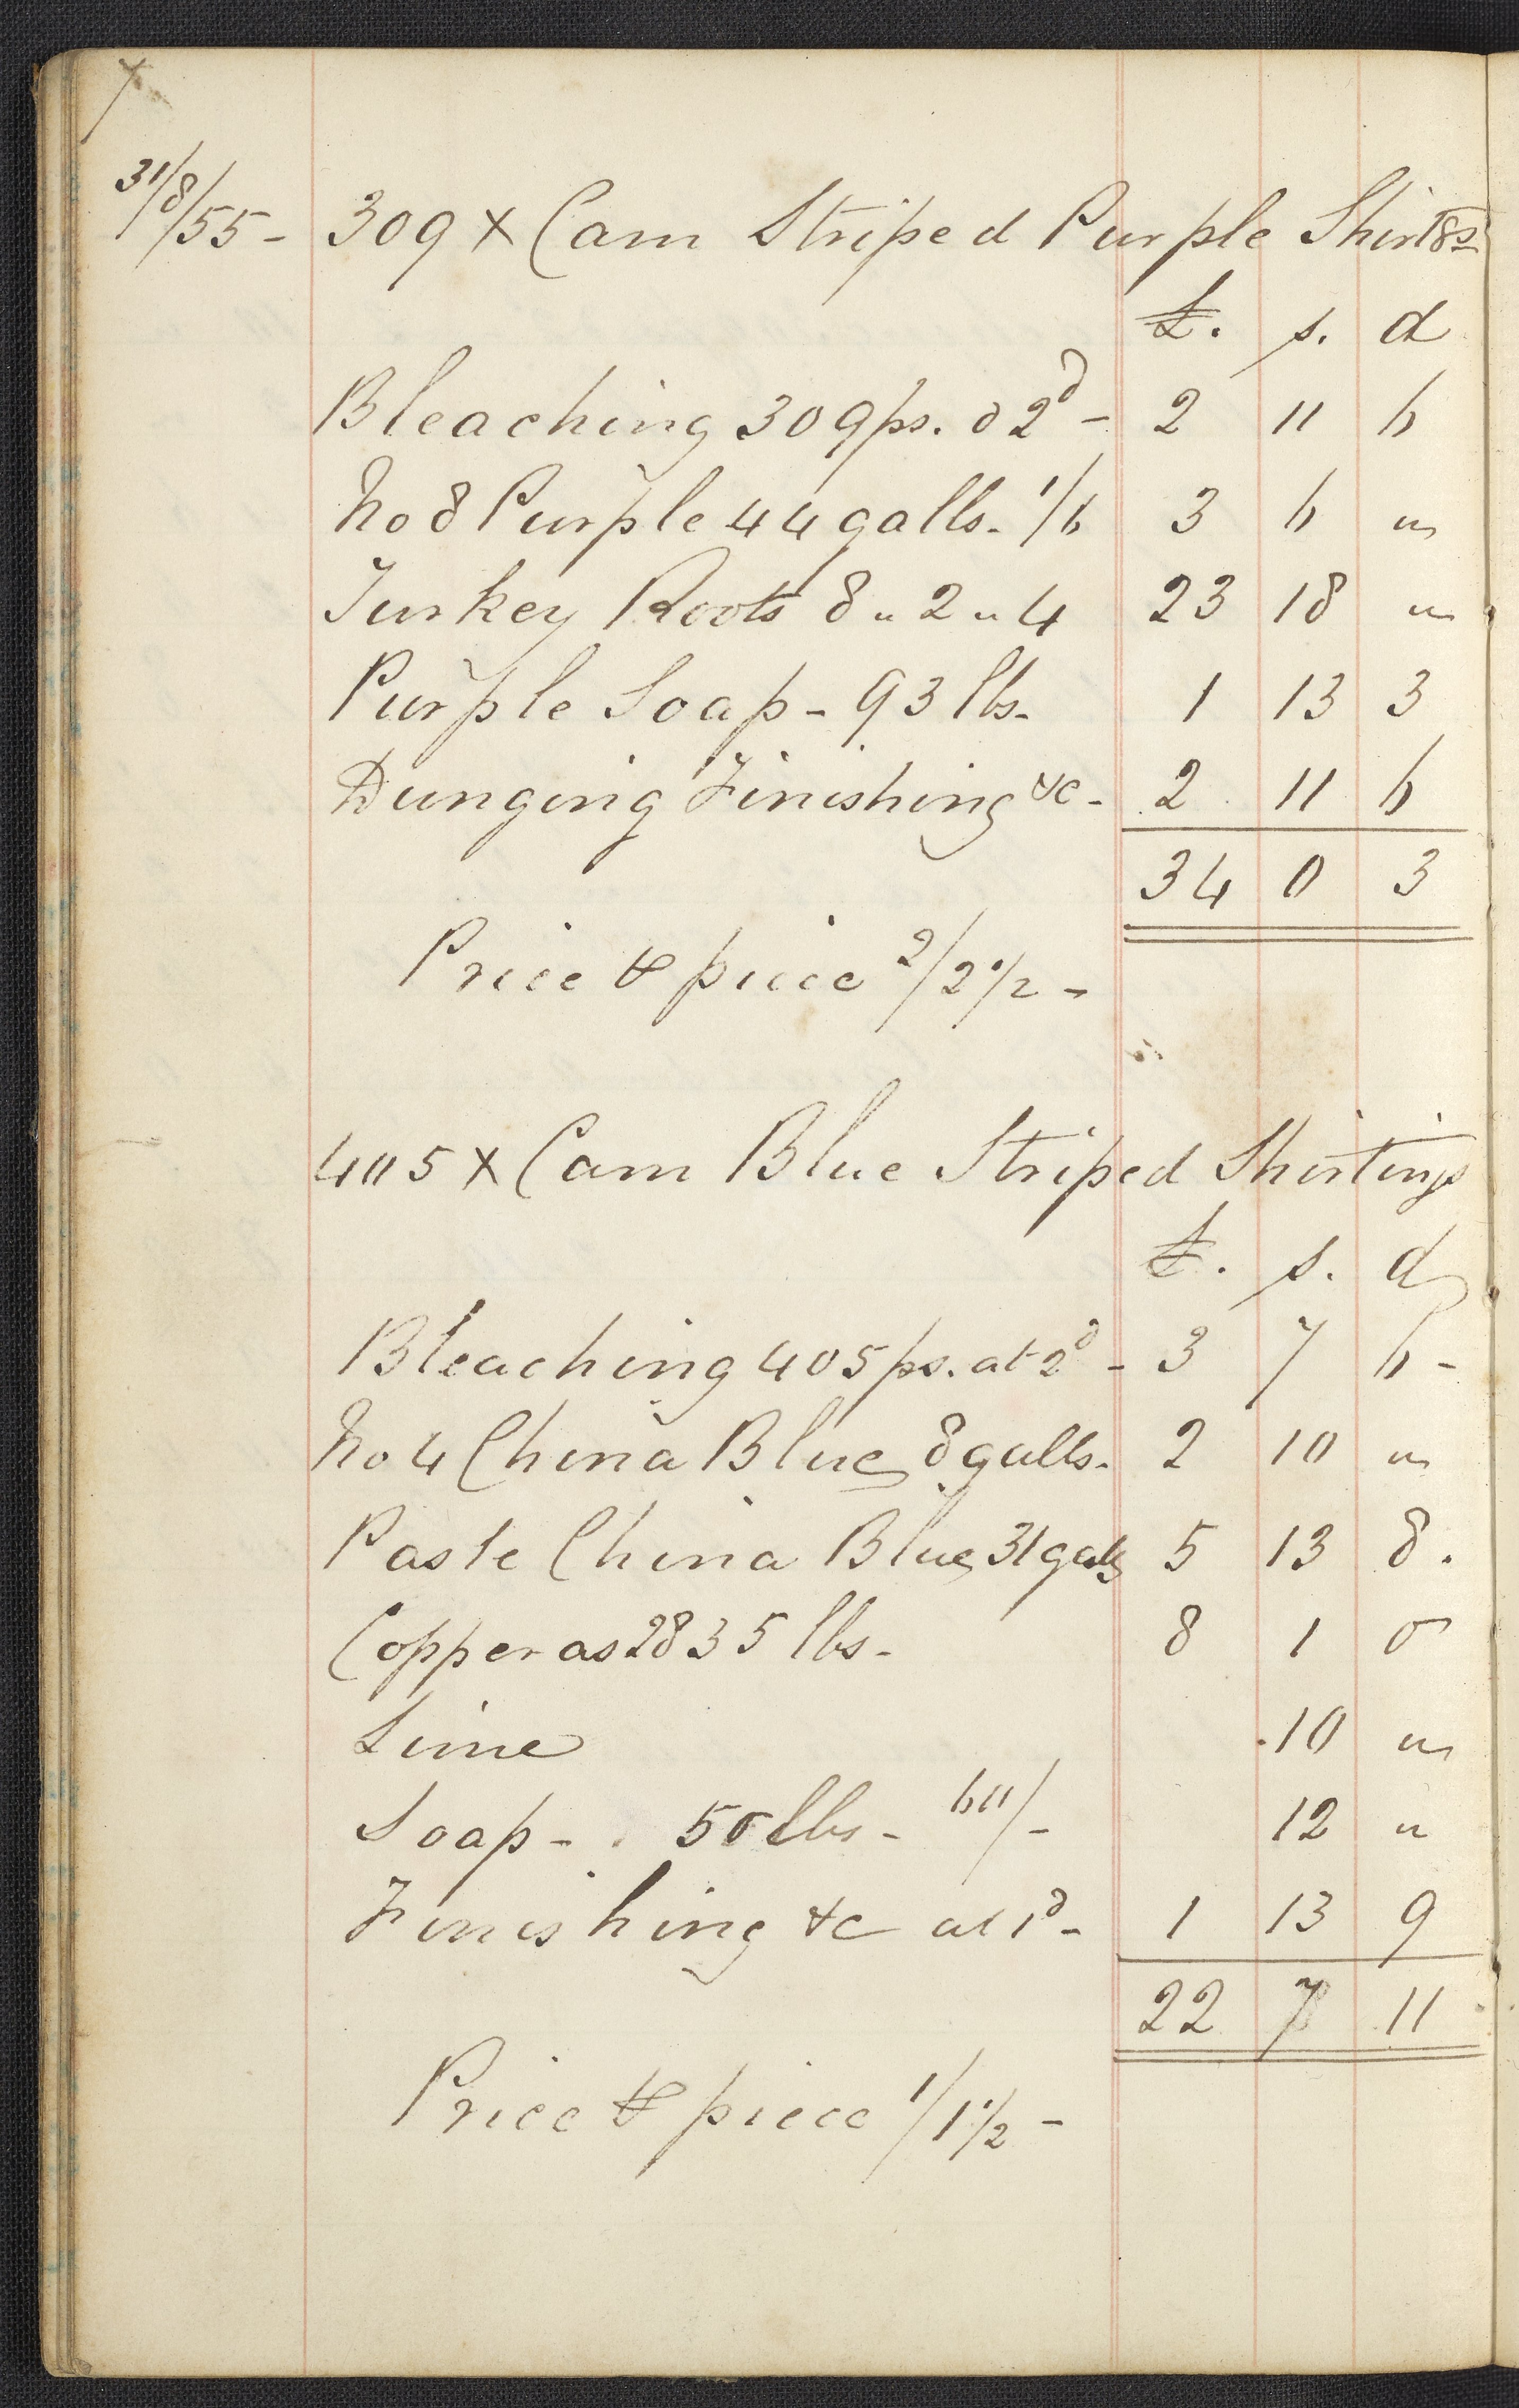 31/8/55- 309 X Cam Striped Purple Shirtgs
£. s. d
Bleaching 309ps. @ 2d - 2 11 6
No 8 Purple 44 galls. 1/6 3 6 "
Turkey Roots 8 " 2 " 4 23 18 "
Purple Soap - 93 lbs. 1 13 3
Dunging Finishing &c - 2 11 6
34 0 3
Price ⅌ piece 2/2 1/2 -
405 X Cam Blue Striped Shirtings
£. s. d
Bleaching 405 ps. at 2d - 3 7 6 -
No 4 China Blue 8 galls. 2 10 "
Paste China Blue 31 galls 5 13 8.
Copperas 2835 lbs. 8 1 0
Lime 10 "
Soap - . 50 lbs - 60/- 12 "
Finishing &c at 1d - 1 13 9
22 7 11
Price ⅌ piece 1/1 1/2 -